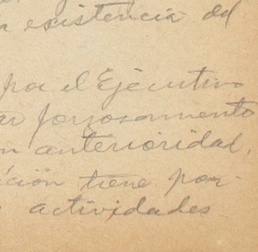 existencia del
por el Ejecutivo
ar forzosamente
on anterioridad,
ición tiene por
actividades